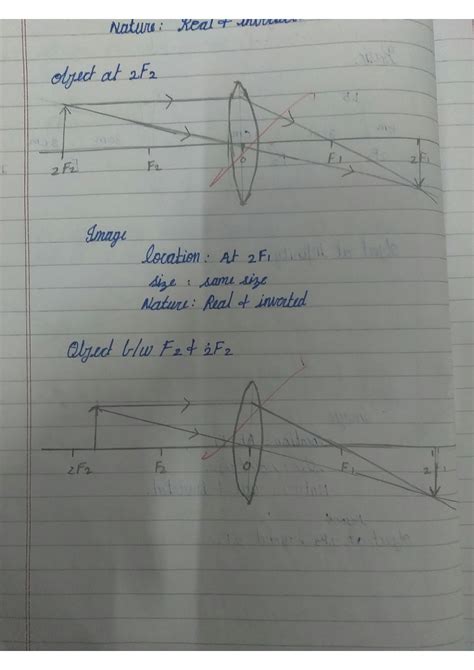 Nature: Real & inverted
Object at 2F2
2F2 F2 O F1 2F1
Image
location: At 2F1
size: same size
Nature: Real & inverted
Object b/w F2 & 2F2
2F2 F2 O F1 2F1